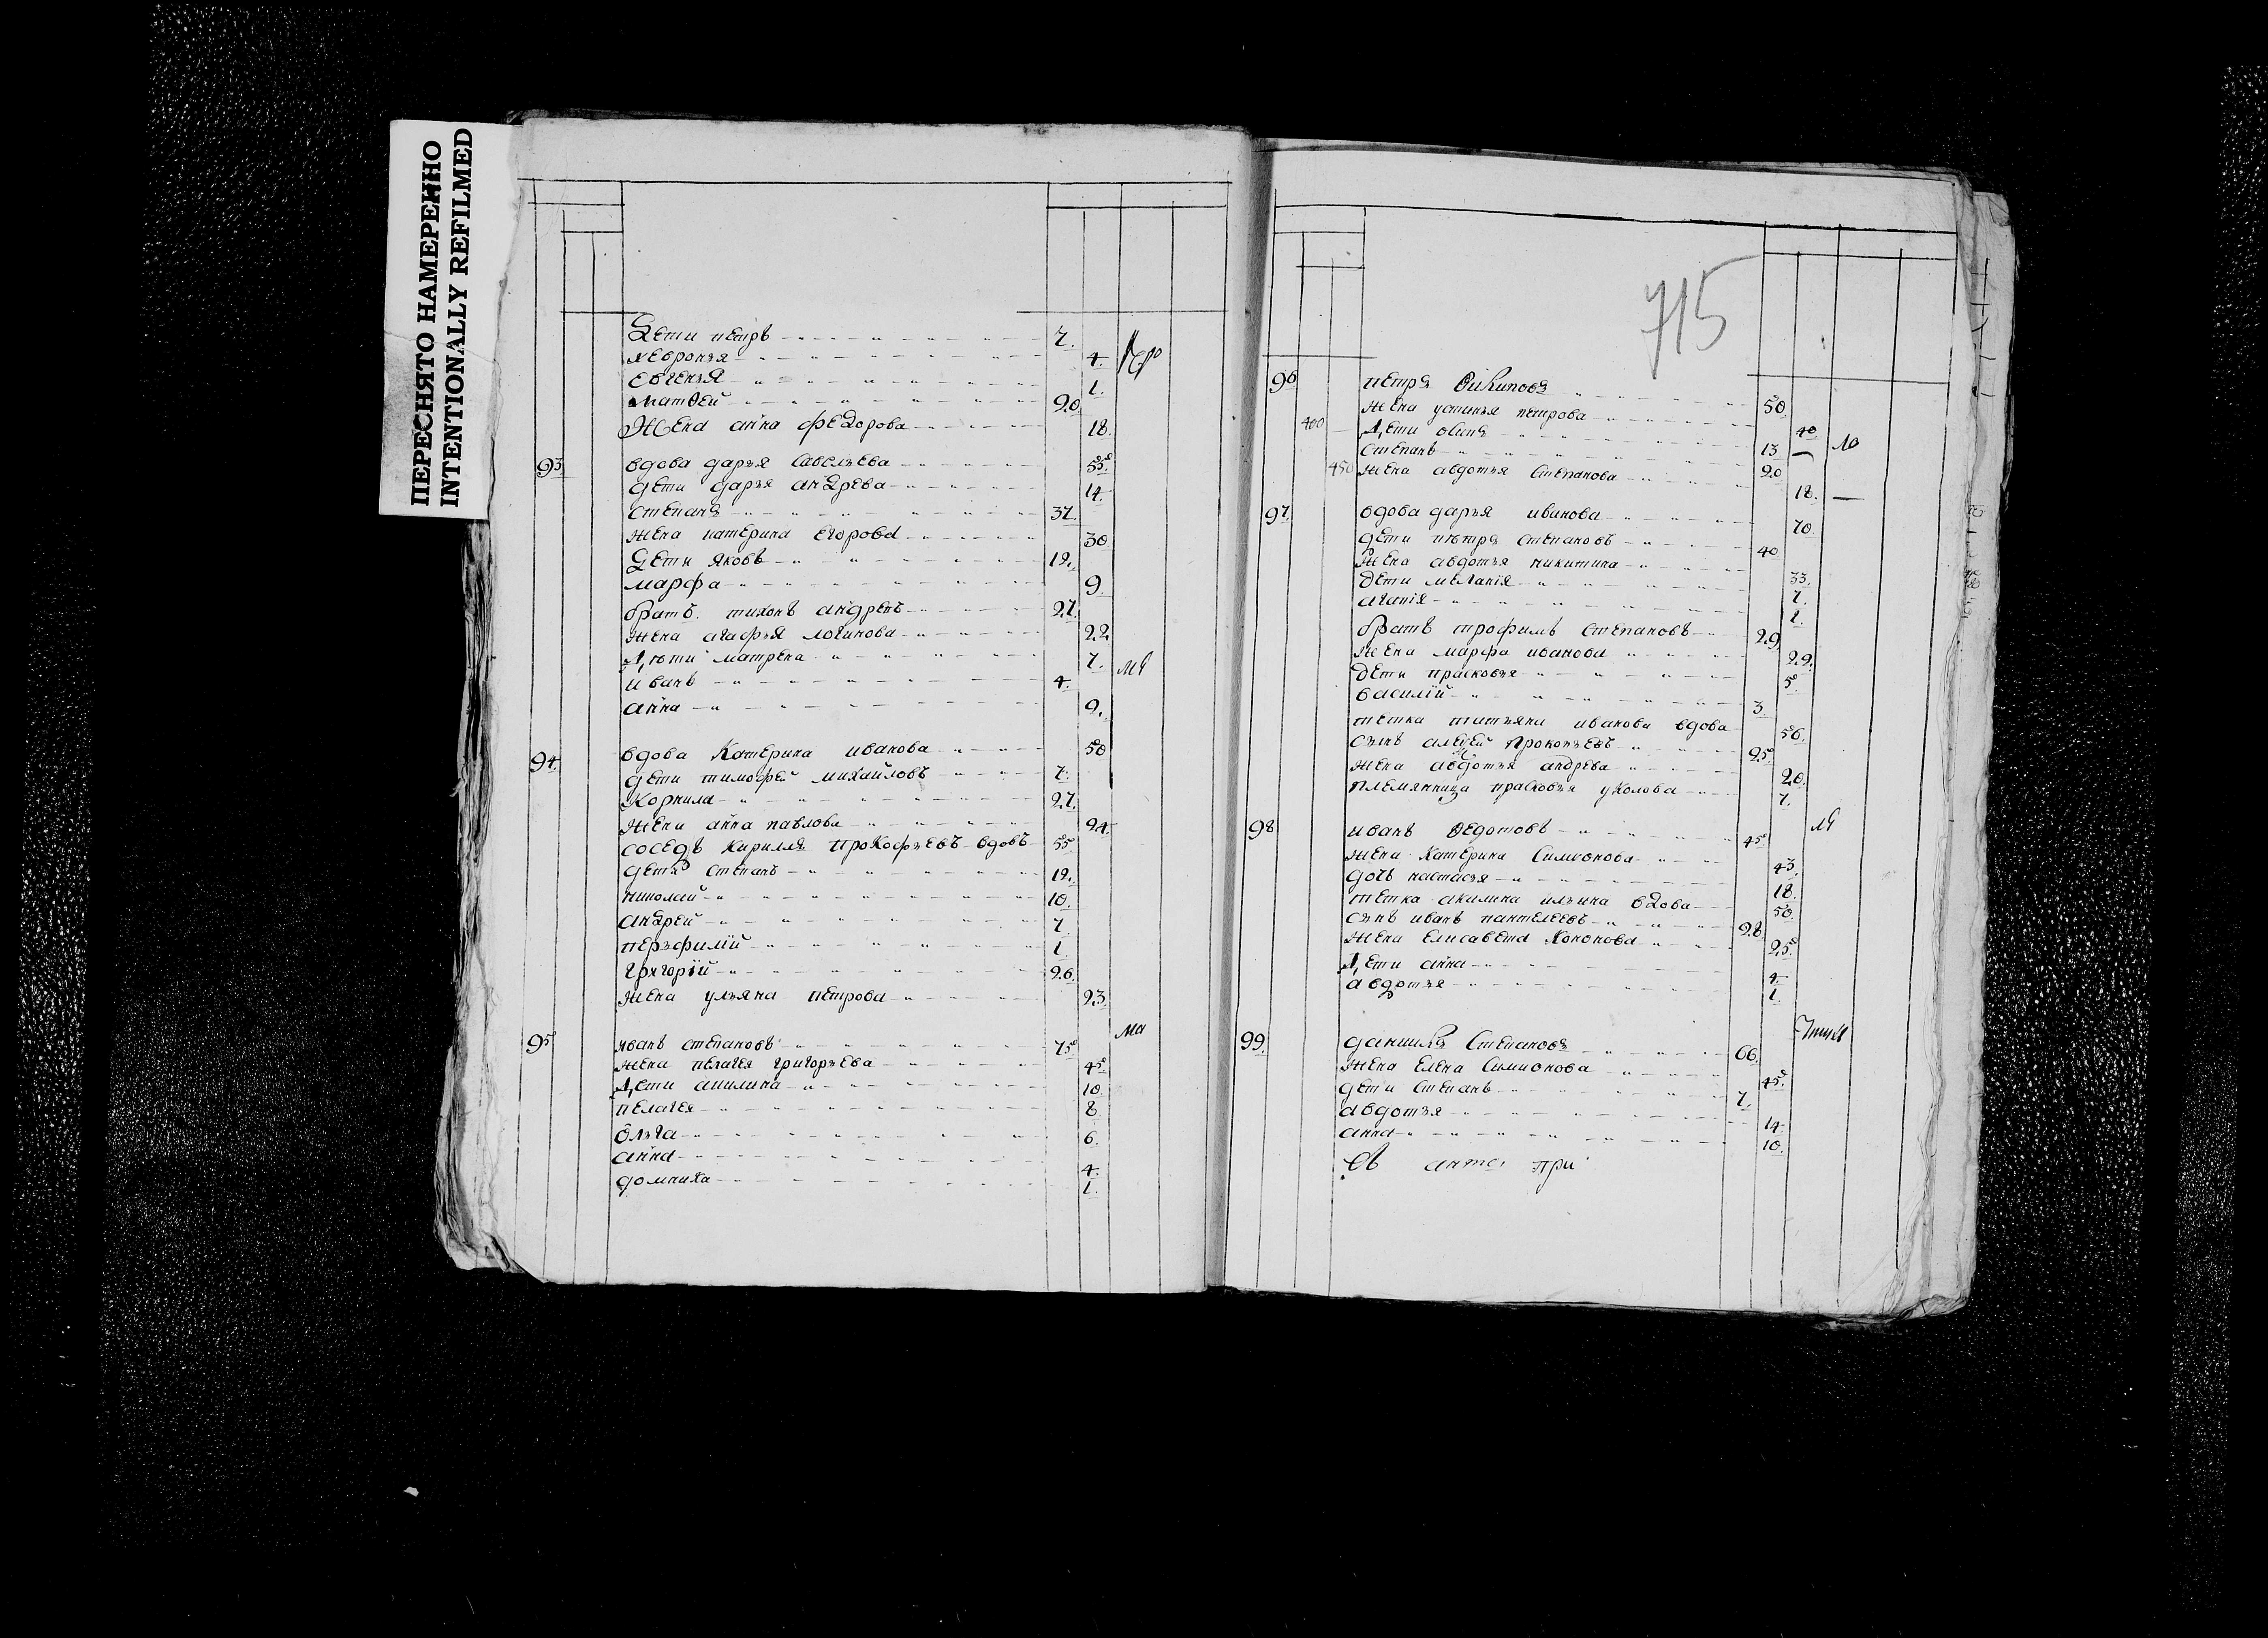 ПЕРЕСНЯТО НАМЕРЕННО
INTENTIONALLY REFILMED
Дети петръ 7.
февронья 4.
Евгенья 1.
матвей 20
Жена анна федорова 18.
93 вдова дарья Савельева 55.
дети дарья андрева 14
степанъ 37.
жена катерина Егорова 30
Дети яковъ 12.
марфа 9
братъ тихонъ андревъ 27.
жена агафья логинова 22
Дѣти матрена 7.
иванъ 4.
анна 2.
94. вдова Катерина иванова 50
дети тимофей михайловъ 7.
Корнила 27.
жена анна павлова 24.
соседъ кирилла прокофьевъ вдовъ 55
дети степанъ 12.
николай 10.
андрей 7
перфилий 1.
григорий 26.
жена ульяна петрова 23.
95 иванъ степановъ 75
жена пелагея григорьева 45
Дети акилина 10.
пелагея 8
ольга 6.
анна 4.
домника 1.
715
96 петръ 50
жена устинья петрова 40
400 Дети осипъ 13
степанъ 20
450 жена авдотья степанова 18.
97 вдова дарья иванова 70
дети пѣтръ степановъ 40
жена авдотья никитина 33.
дети мелания 7.
агапия 1.
братъ трофимъ степановъ 29
жена марфа иванова 29.
дети прасковья 5
василий 3
тетка татьяна иванова вдова 56.
сынъ алексей прокопьевъ 25
жена авдотья андрева 20.
племянница прасковья уколова 7.
98 иванъ федотовъ 45
жена Катерина Симионова 43.
дочь настасья 18
тетка акилина ильина вдова 50.
сынъ иванъ пантелеевъ 28
жена Елисавета кононова 25
Дети анна 4
авдотья 1.
99. данила Степановъ 66
жена Елена Симионова 45.
дети Степанъ 7.
авдотья 14
анна 10.